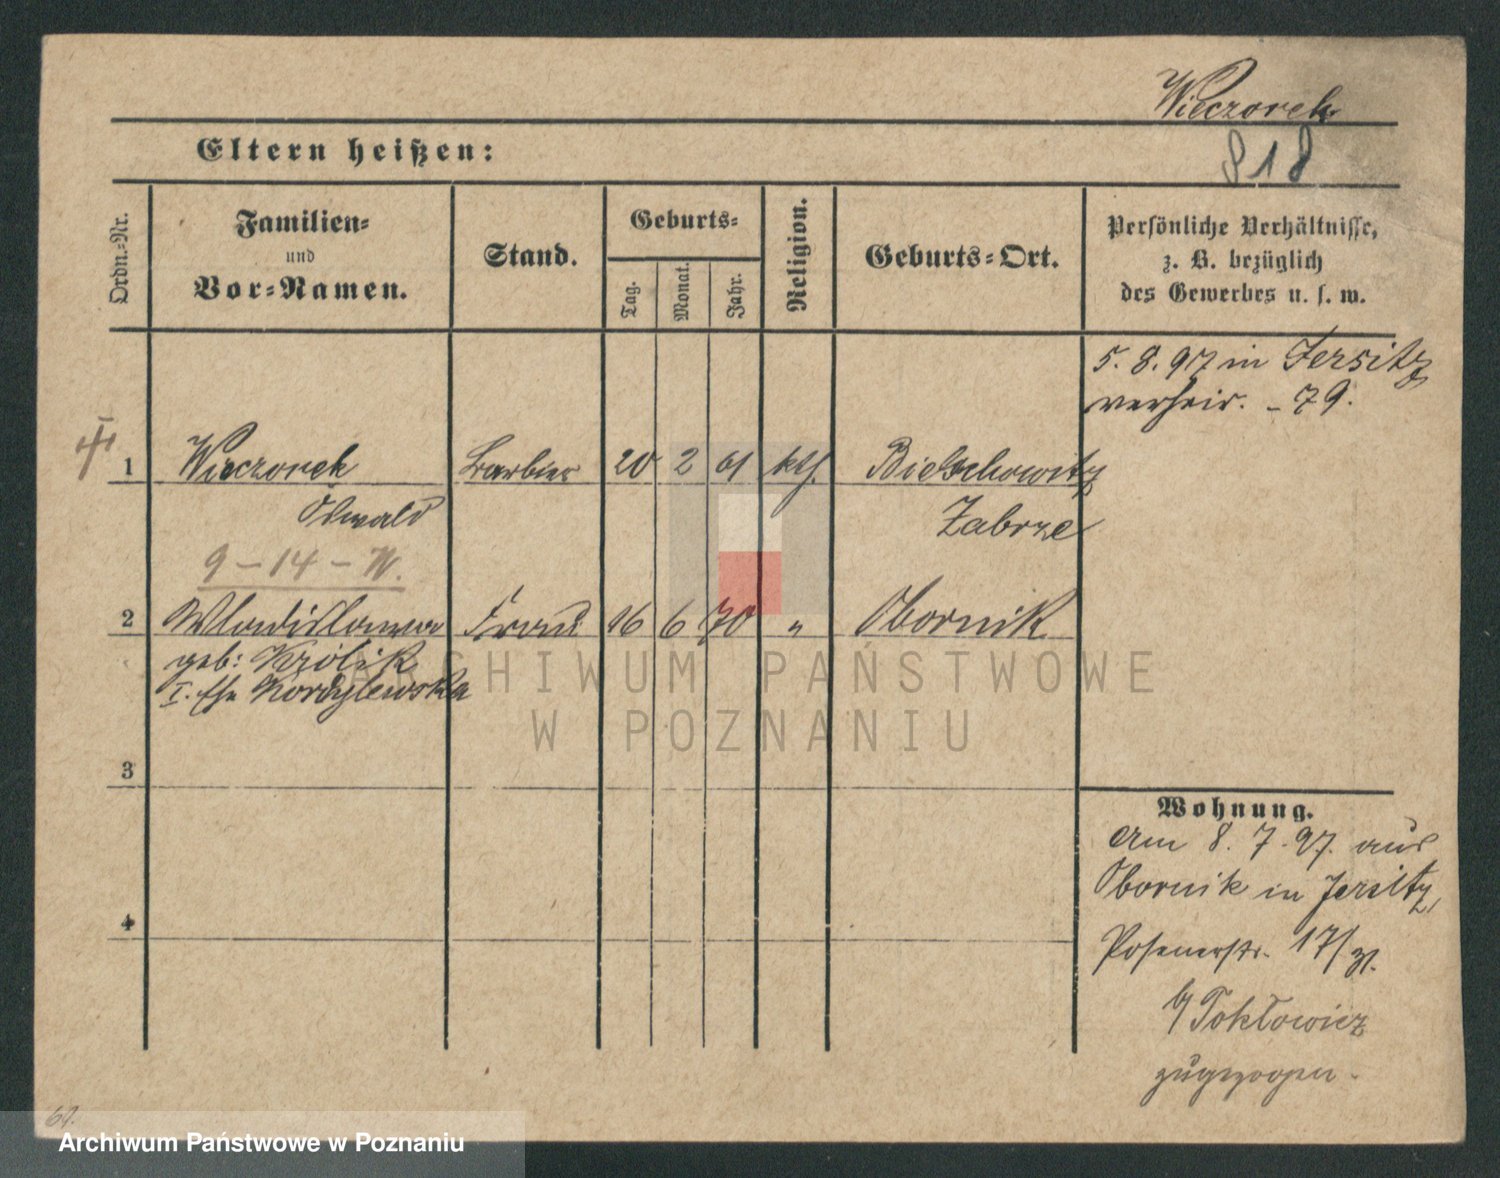 Wieczorek
Eltern heißen:
818
Ordn.-Nr.
Familien-
und
Vor-Namen.
Stand.
Geburts-
Tag.
Monat.
Jahr.
Religion.
Geburts-Ort.
Persönliche Verhältnisse,
z. B. bezüglich
des Gewerbes u. s. w.
5. 8. 97 in Jersitz
verheir. - 79.
1 Wieczorek Barbier 20 2 61 kth. Bielschowitz
Oswald Zabrze
9 - 14 - W.
2 Wladislawa Frau 16 6 70 " Obornik
geb: Królik
I. Ehe Kordylewska
ARCHIWUM PAŃSTWOWE
W POZNANIU
3
Wohnung.
Am 8. 7. 97. aus
Obornik in Jersitz,
4
Posenerstr. 17/
b/ Tokłowicz
zugezogen.
61.
Archiwum Państwowe w Poznaniu